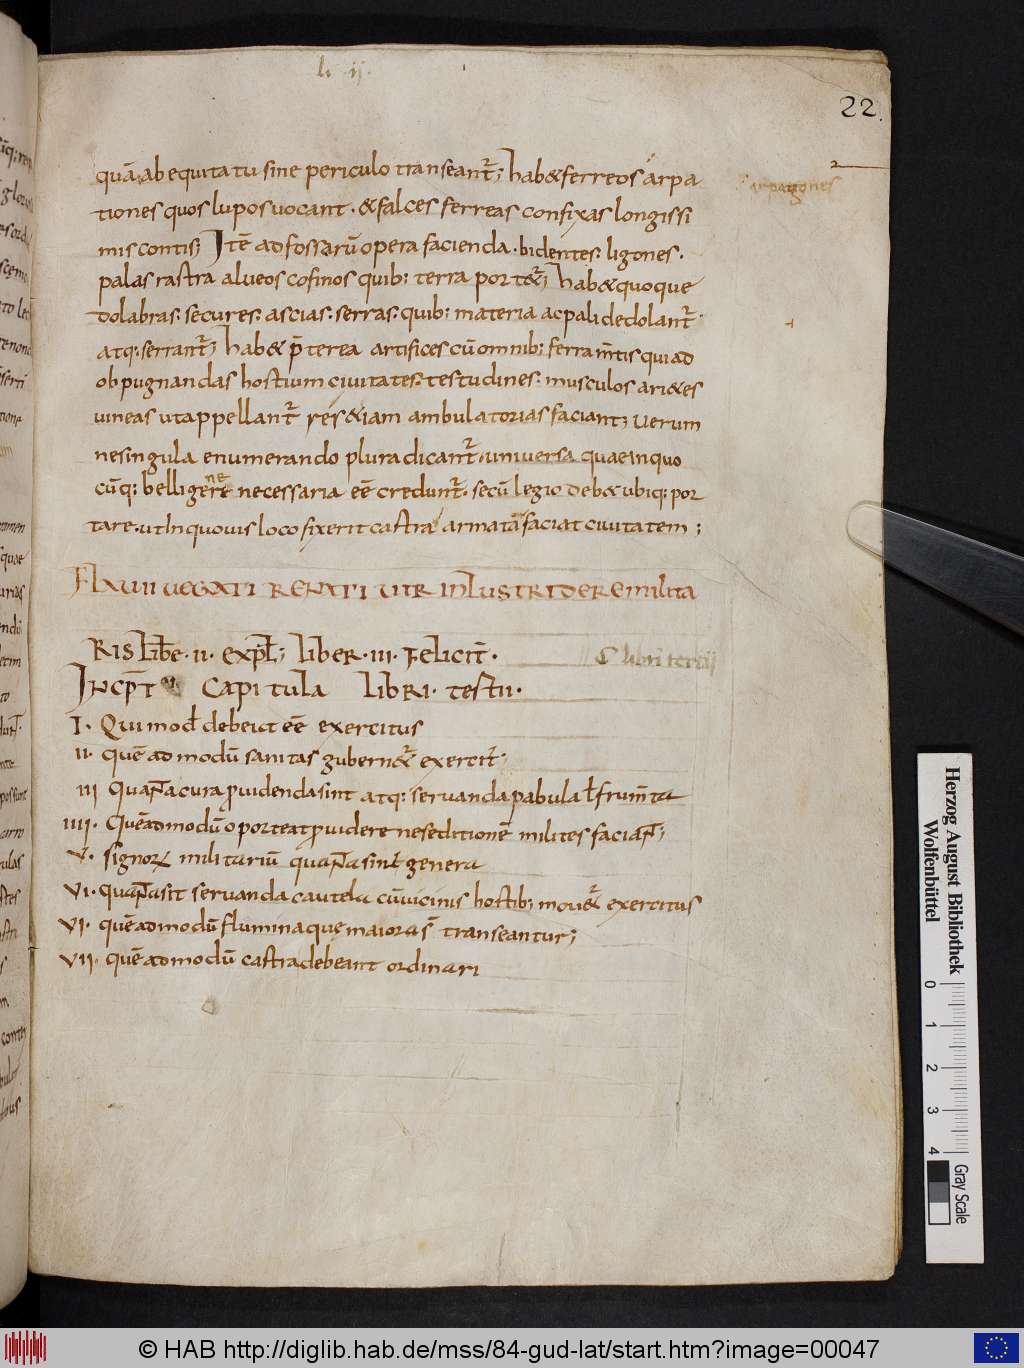 li ij.
22.
quā ab equitatu sine periculo transeant᷑; hab& ferreos arpa
arpagones
tiones quos lupos uocant · & falces ferreas confixas longissi
mis contis; Itē ad fossarū opera facienda · bidentes · ligones ·
palas rastra alueos cofinos quib: terra port&᷑; hab& quoque
dolabras · secures · ascias · serras · quib: materia ac pali dedolant᷑ ·
atq: serrant᷑; hab& p̄terea artifices cū omnib; ferram̄tis qui ad
obpugnandas hostium ciuitates · testudines · musculos ari&es
uineas ut appellant᷑ res &iam ambulatorias faciant; Uerum
ne singula enumerando plura dicant᷑ · uniuersa quae in quo
cūq: belli genere necessaria eē credunt᷑ · secū legio deb& ubiq: por
tare · ut in quouis loco fixerit castra armatā faciat ciuitatem ;
FLAVII VEGATI RENATI VIR INLUSTRI DE RE milita
RIS LIBE · II · EXPL; LIBER · III · FELICIT̄ ·
C libri tertij
INCP̄T CAPITULA LIBRI · TERTII ·
I · Qui mod̄ debeat eē exercitus
II · quē ad modū sanitas gubern&᷑ exercit᷑;
III Quanta cura p̱uidenda sint atq: seruanda pabula ł frum̄ta
IIII · Quēadmodū oporteat p̱uidere ne seditionē milites facian̄t;
V · signoꝝ militariū quanta sint genera
VI · quanta sit seruanda cautela cū uicinis hostib; mou&᷑ exercitus
VI · quēadmodū flumina que maiora s̄ transeantur;
VII · quēadmodū castra debeant ordinari
Herzog August Bibliothek
Wolfenbüttel
0 1 2 3 4
Gray Scale
© HAB http://diglib.hab.de/mss/84-gud-lat/start.htm?image=00047